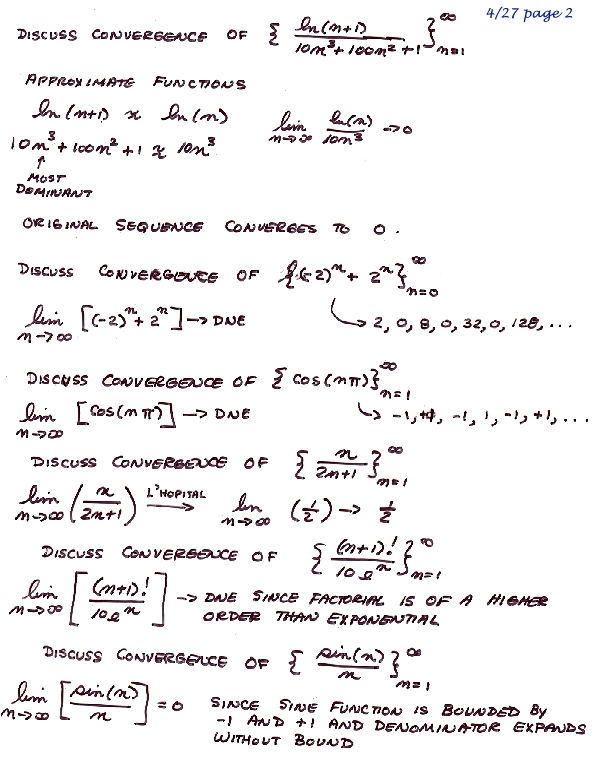 4/27 page 2
DISCUSS CONVERGENCE OF { ln(n+1) / (10n³+100n²+1) }ₙ₌₁^∞
APPROXIMATE FUNCTIONS
ln(n+1) ≈ ln(n)
lim n→∞ ln(n)/10n³ → 0
10n³+100n²+1 ≈ 10n³
↑
MOST
DOMINANT
ORIGINAL SEQUENCE CONVERGES TO 0.
DISCUSS CONVERGENCE OF {(-2)ⁿ + 2ⁿ}ₙ₌₀^∞
lim n→∞ [(-2)ⁿ+2ⁿ] → DNE
↳ 2, 0, 8, 0, 32, 0, 128, ...
DISCUSS CONVERGENCE OF {cos(nπ)}ₙ₌₁^∞
lim n→∞ [cos(nπ)] → DNE
↳ -1, +1, -1, 1, -1, +1, ...
DISCUSS CONVERGENCE OF { n/(2n+1) }ₙ₌₁^∞
lim n→∞ (n/(2n+1)) L'HOPITAL → lim n→∞ (1/2) → 1/2
DISCUSS CONVERGENCE OF { (n+1)!/(10eⁿ) }ₙ₌₁^∞
lim n→∞ [(n+1)!/(10eⁿ)] → DNE SINCE FACTORIAL IS OF A HIGHER
ORDER THAN EXPONENTIAL
DISCUSS CONVERGENCE OF { sin(n)/n }ₙ₌₁^∞
lim n→∞ [sin(n)/n] = 0 SINCE SINE FUNCTION IS BOUNDED BY
-1 AND +1 AND DENOMINATOR EXPANDS
WITHOUT BOUND